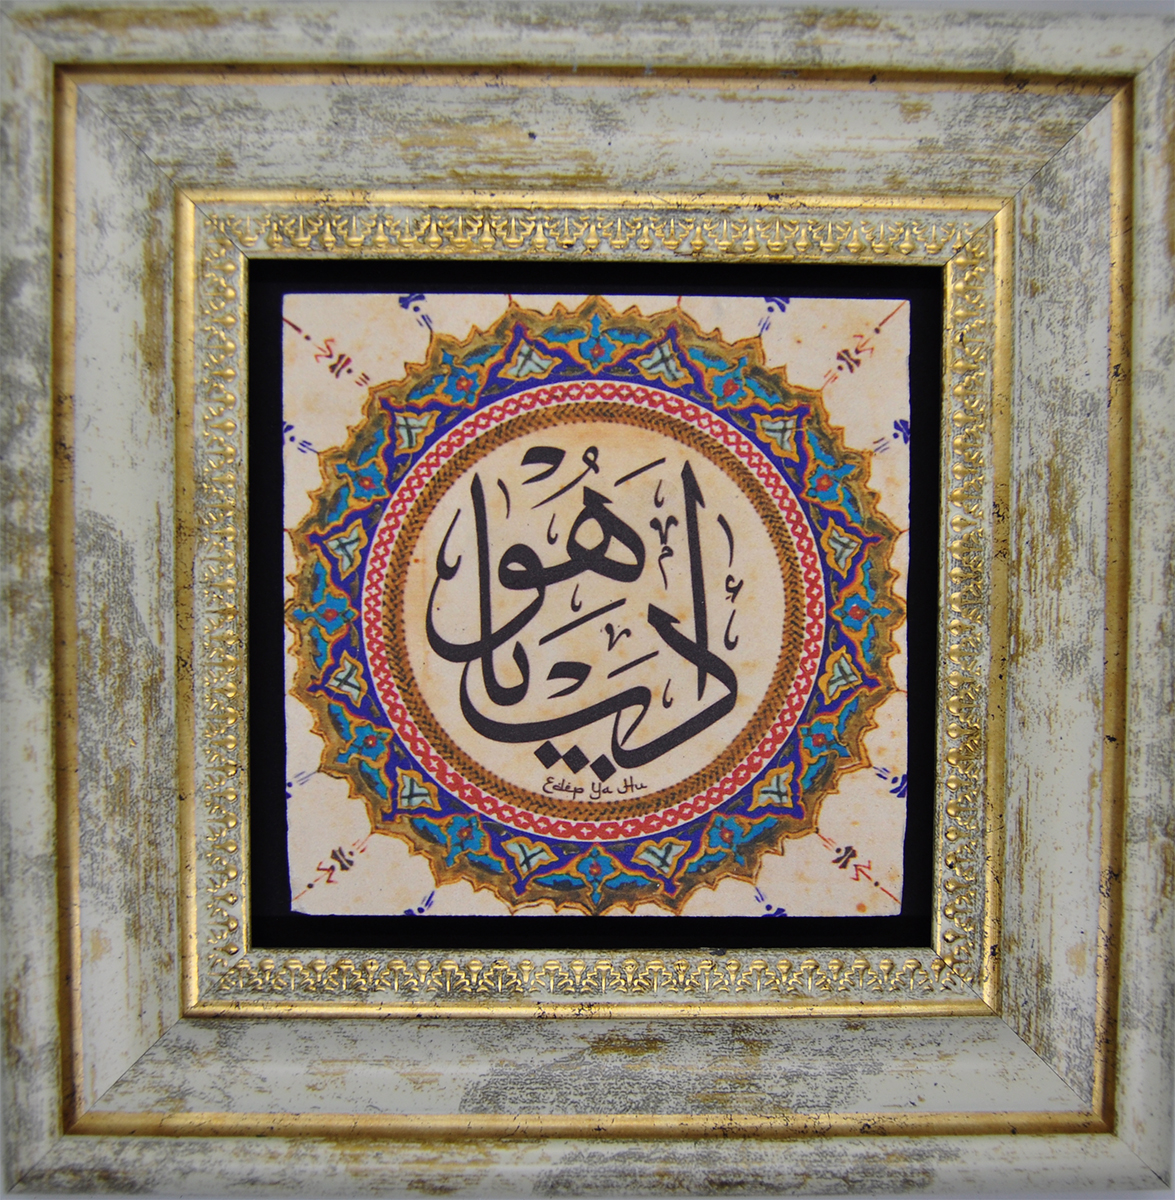 ادب يا هو
Edêp Ya Hu